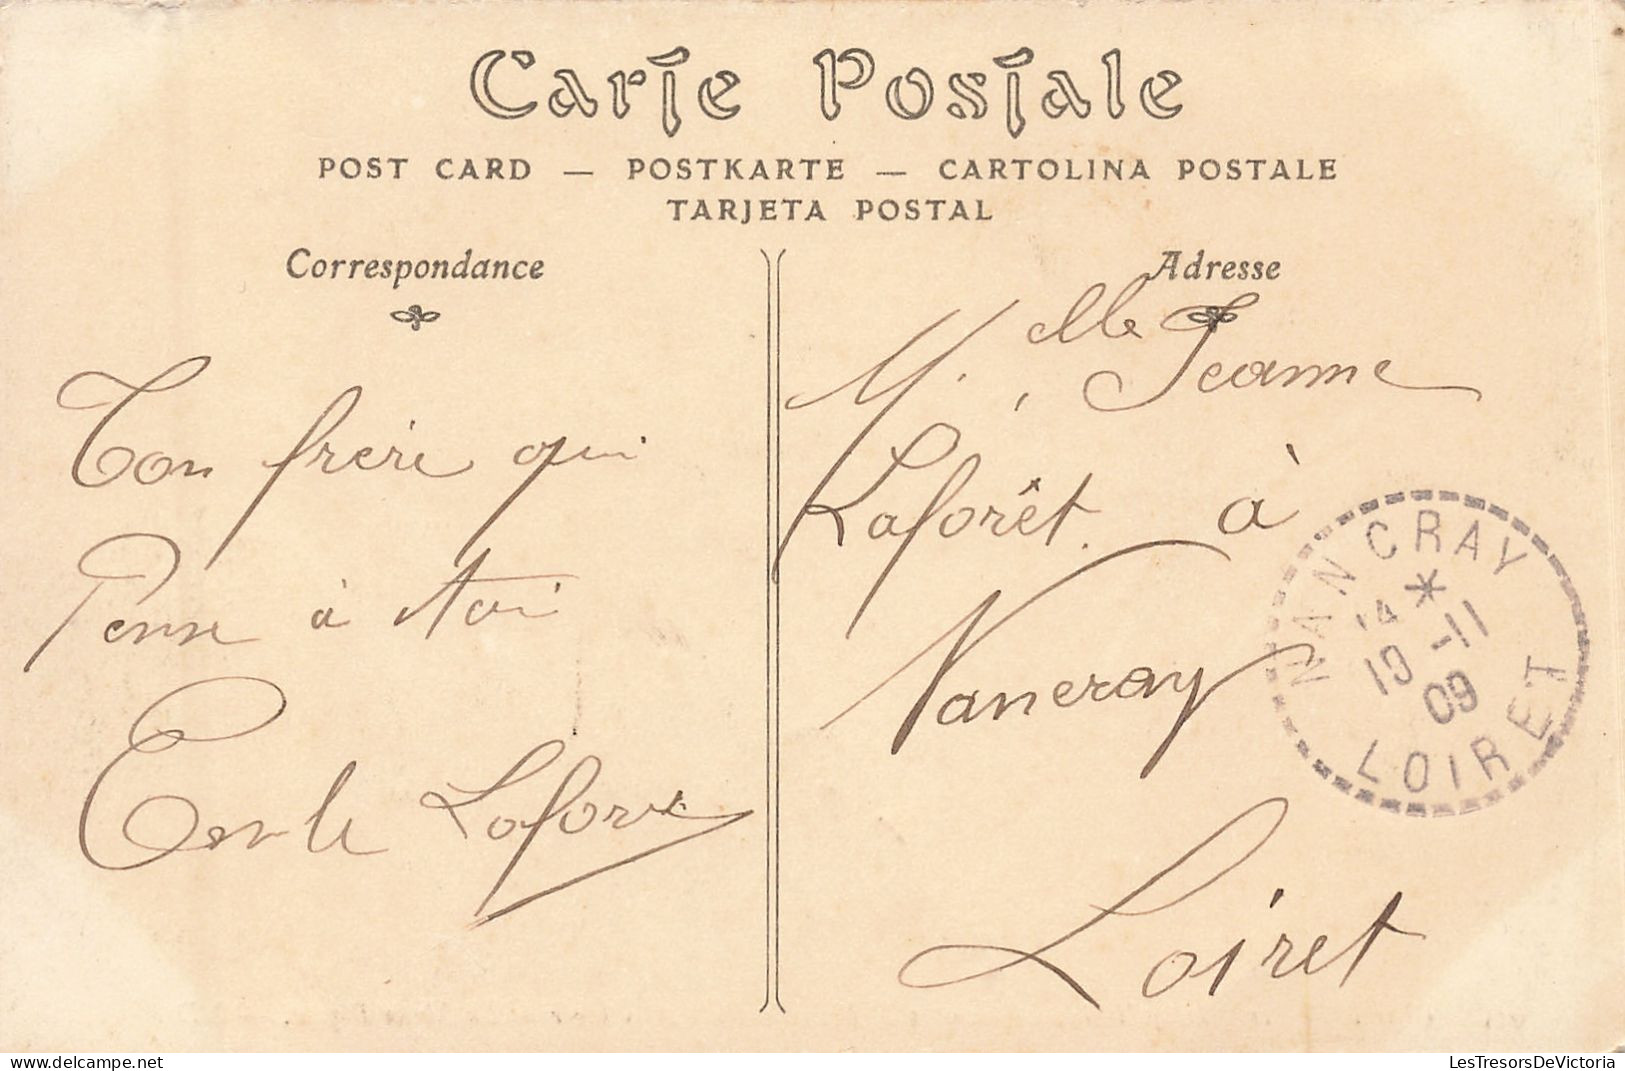 Carte Postale
POST CARD — POSTKARTE — CARTOLINA POSTALE
TARJETA POSTAL
Correspondance
Ton frère qui
Pense à toi
Emile Laforêt
Adresse
M.elle Jeanne
Laforêt à
Nancray
Loiret
NANCRAY
14
19-11
09
LOIRET
www.delcampe.net
LesTresorsDeVictoria